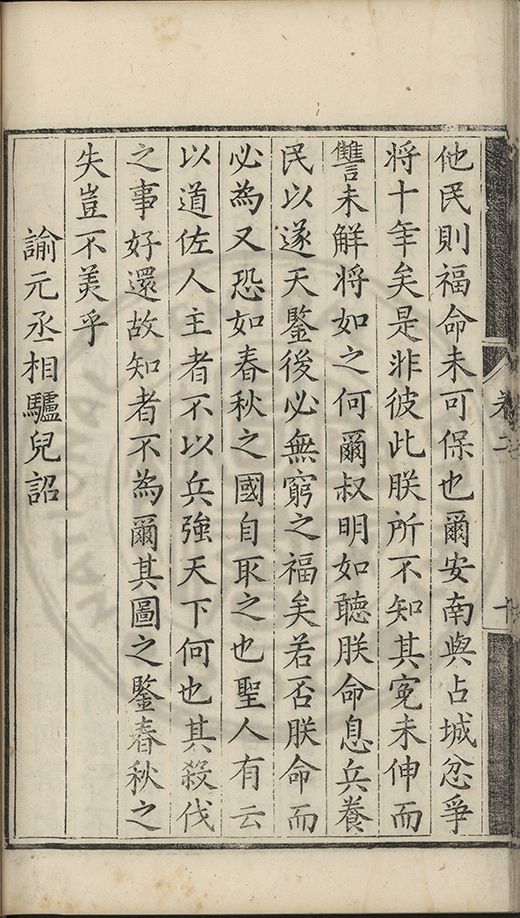 他民則福命未可保也爾安南與占城忿爭
將十年矣是非彼此朕所不知其寃未伸而
讐未解將如之何爾叔明如聽朕命息兵養
民以遂天鑒後必無窮之福矣若否朕命而
必為又恐如春秋之國自取之也聖人有云
以道佐人主者不以兵強天下何也其殺伐
之事好還故知者不為爾其圖之鑒春秋之
失豈不美乎
諭元丞相驢兒詔
卷二
十